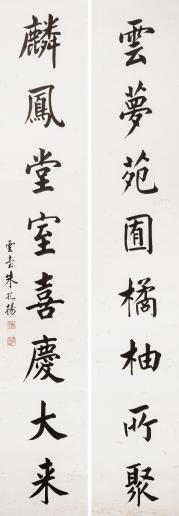 雲夢苑囿橘柚所聚
麟鳳堂室喜慶大来
雲臺朱孔揚